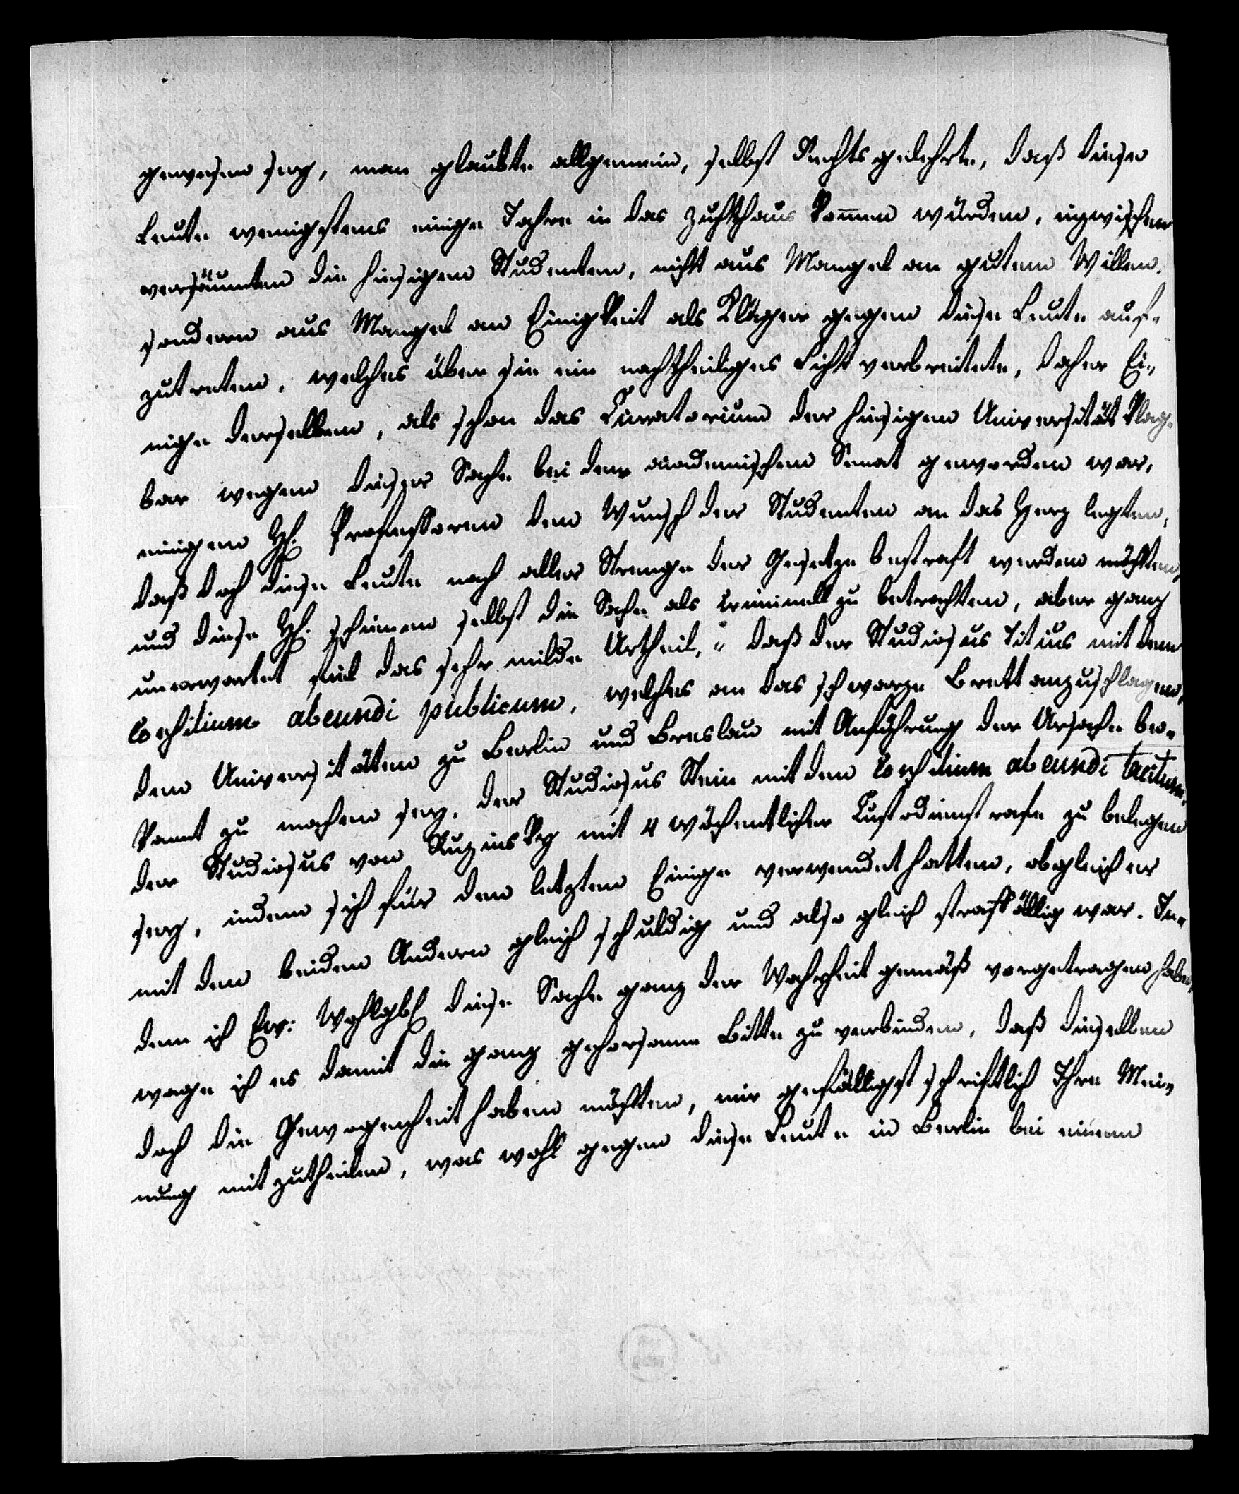 gewesen sey, man glaubte allgemein, selbst Rechtsgelehrte, daß diese
Leute wenigstens einige Jahre in das Zuchthaus kommen würden, inzwischen
versäumten die hiesigen Studenten, nicht aus Mangel an gutem Willen,
sondern aus Mangel an Einigkeit als Kläger gegen diese Leute auf-
zutreten, welches über sie ein nachtheiliges Licht verbreitete, daher Ei-
nige derselben, als schon das Curatorium der hiesigen Universität klag-
bar wegen dieser Sache bei dem academischen Senat geworden war,
einigen HH. Professoren den Wunsch der Studenten an das Herz legten,
daß doch diese Leute nach aller Strenge der Gesetze bestraft werden möchten,
und diese HH. schienen selbst die Sache als criminell zu betrachten, aber ganz
unerwartet fiel das sehr milde Urtheil, „ daß der Studiosus Titius mit dem
Consilium abeundi publicum, welches an das schwarze Brett anzuschlagen,
den Universitäten zu Berlin und Breslau mit Anführung der Ursache be-
kannt zu machen sey, der Studiosus Stein mit dem Consilium abeundi tacitum,
der Studiosus von mit 4 wöchentlicher Custodienstrafe zu belegen
sey, indem sich für den letzten Einige verwendet hatten, obgleich er
mit den beiden Andern gleich schuldig und also gleich straffällig war. In-
dem ich Ew: Wohlgb diese Sache ganz der Wahrheit gemäß vorgetragen habe,
wage ich es damit die ganz gehorsame Bitte zu verbinden, daß dieselben
doch die Gewogenheit haben möchten, mir gefälligst schriftlich Ihre Mei-
nung mitzutheilen, was wohl gegen diese Leute in Berlin bei einem